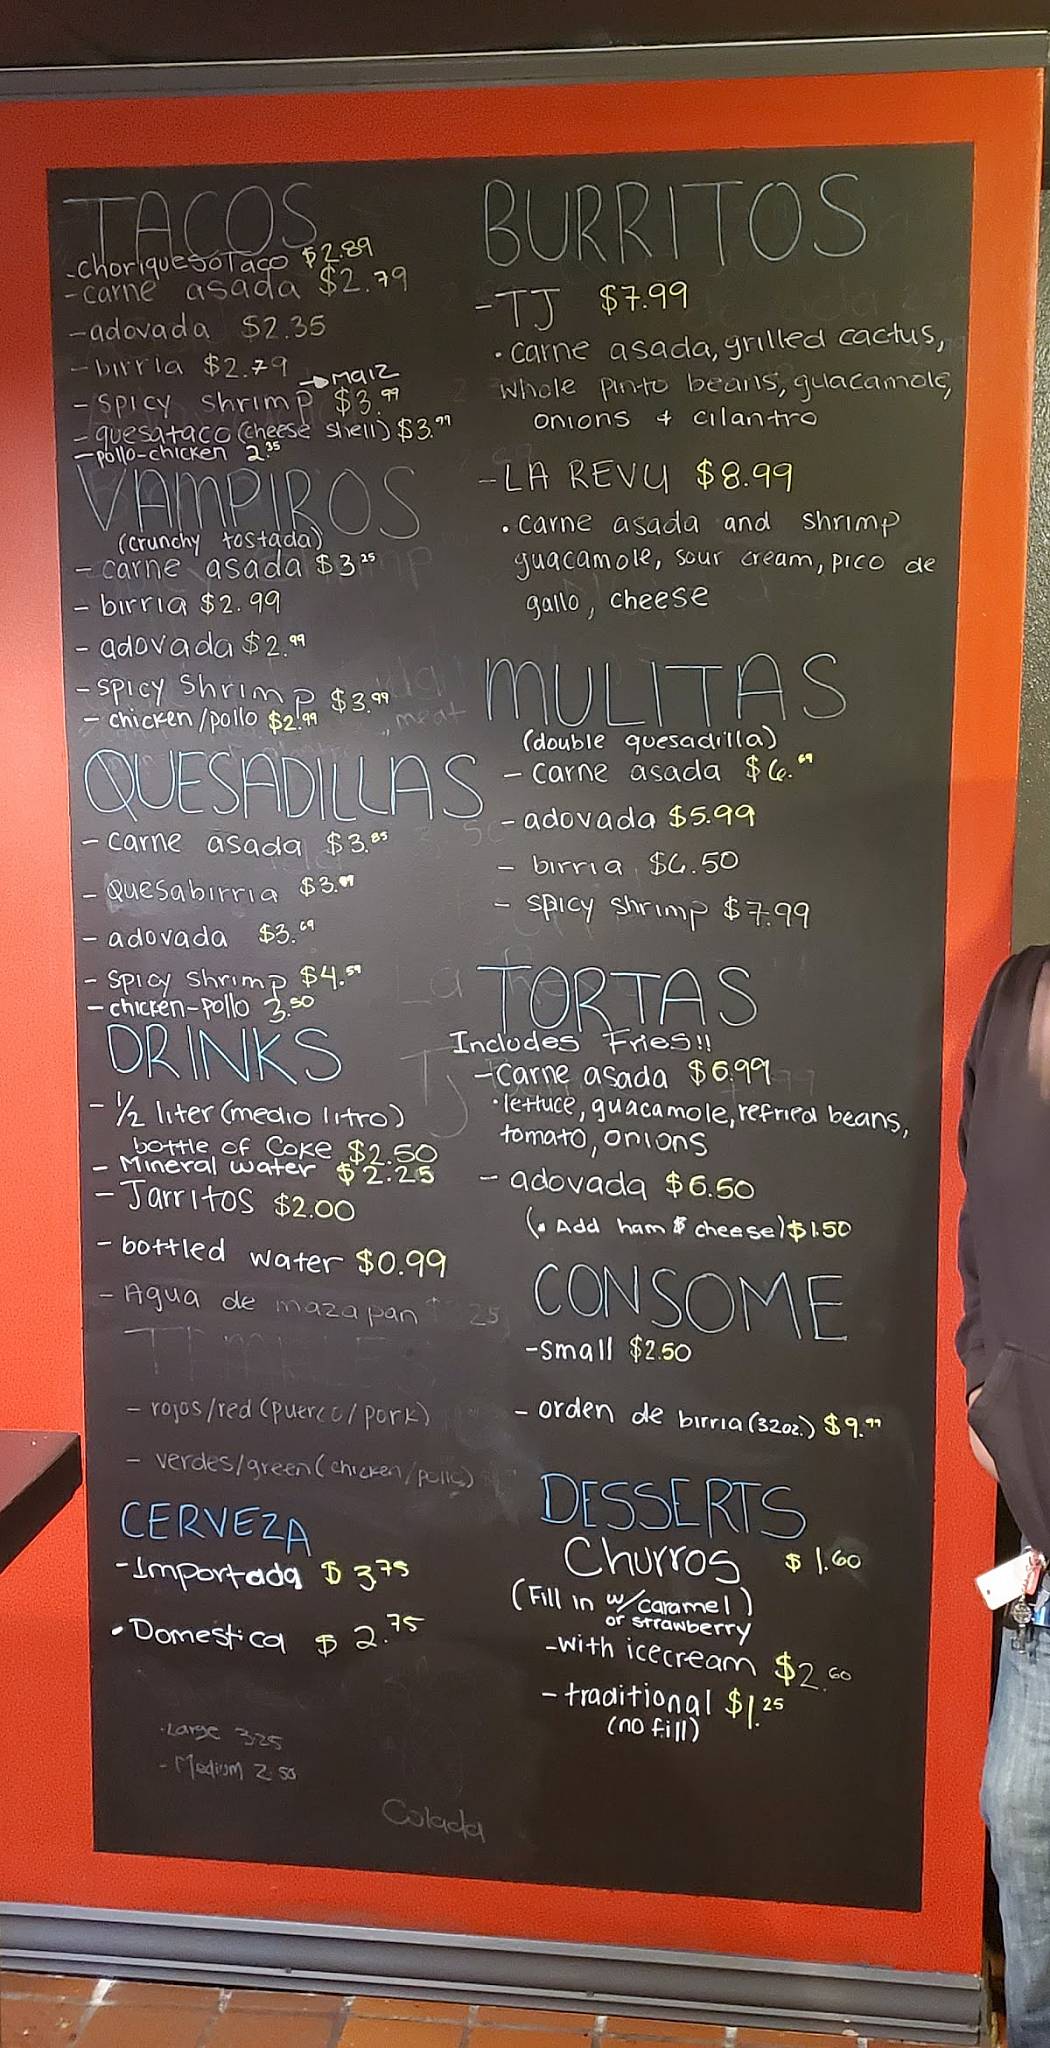 TACOS
- choriquesotaco $2.89
- carne asada $2.79
- adovada $2.35
- birria $2.79
→ maiz
- spicy shrimp $3.99
- quesataco (cheese shell) $3.99
- pollo-chicken 2.35
VAMPIROS
(crunchy tostada)
- carne asada $3.25
- birria $2.99
- adovada $2.99
- spicy shrimp $3.99
- chicken/pollo $2.99
QUESADILLAS
- carne asada $3.85
- Quesabirria $3.
- adovada $3.69
- spicy shrimp $4.59
- chicken-pollo 3.50
DRINKS
- 1/2 liter (medio litro)
bottle of Coke $2.50
- Mineral water $2.25
- Jarritos $2.00
- bottled water $0.99
- Agua de mazapan
- rojos/red (puerco/pork)
- verdes/green (chicken/pollo)
CERVEZA
- Importada $3.75
• Domestica $2.75
• Large 3.25
- Medium 2.50
Colada
BURRITOS
- TJ $7.99
• carne asada, grilled cactus,
whole pinto beans, guacamole,
onions + cilantro
- LA REVU $8.99
• carne asada and shrimp
guacamole, sour cream, pico de
gallo, cheese
MULITAS
(double quesadilla)
- carne asada $6.69
- adovada $5.99
- birria $6.50
- spicy shrimp $7.99
TORTAS
Includes Fries!!
- carne asada $6.99
• lettuce, guacamole, refried beans,
tomato, onions
- adovada $6.50
(• Add ham & cheese) $1.50
CONSOME
- small $2.50
- orden de birria (32oz.) $9.99
DESSERTS
Churros $1.60
(Fill in w/caramel)
or strawberry
- with icecream $2.60
- traditional $1.25
(no fill)